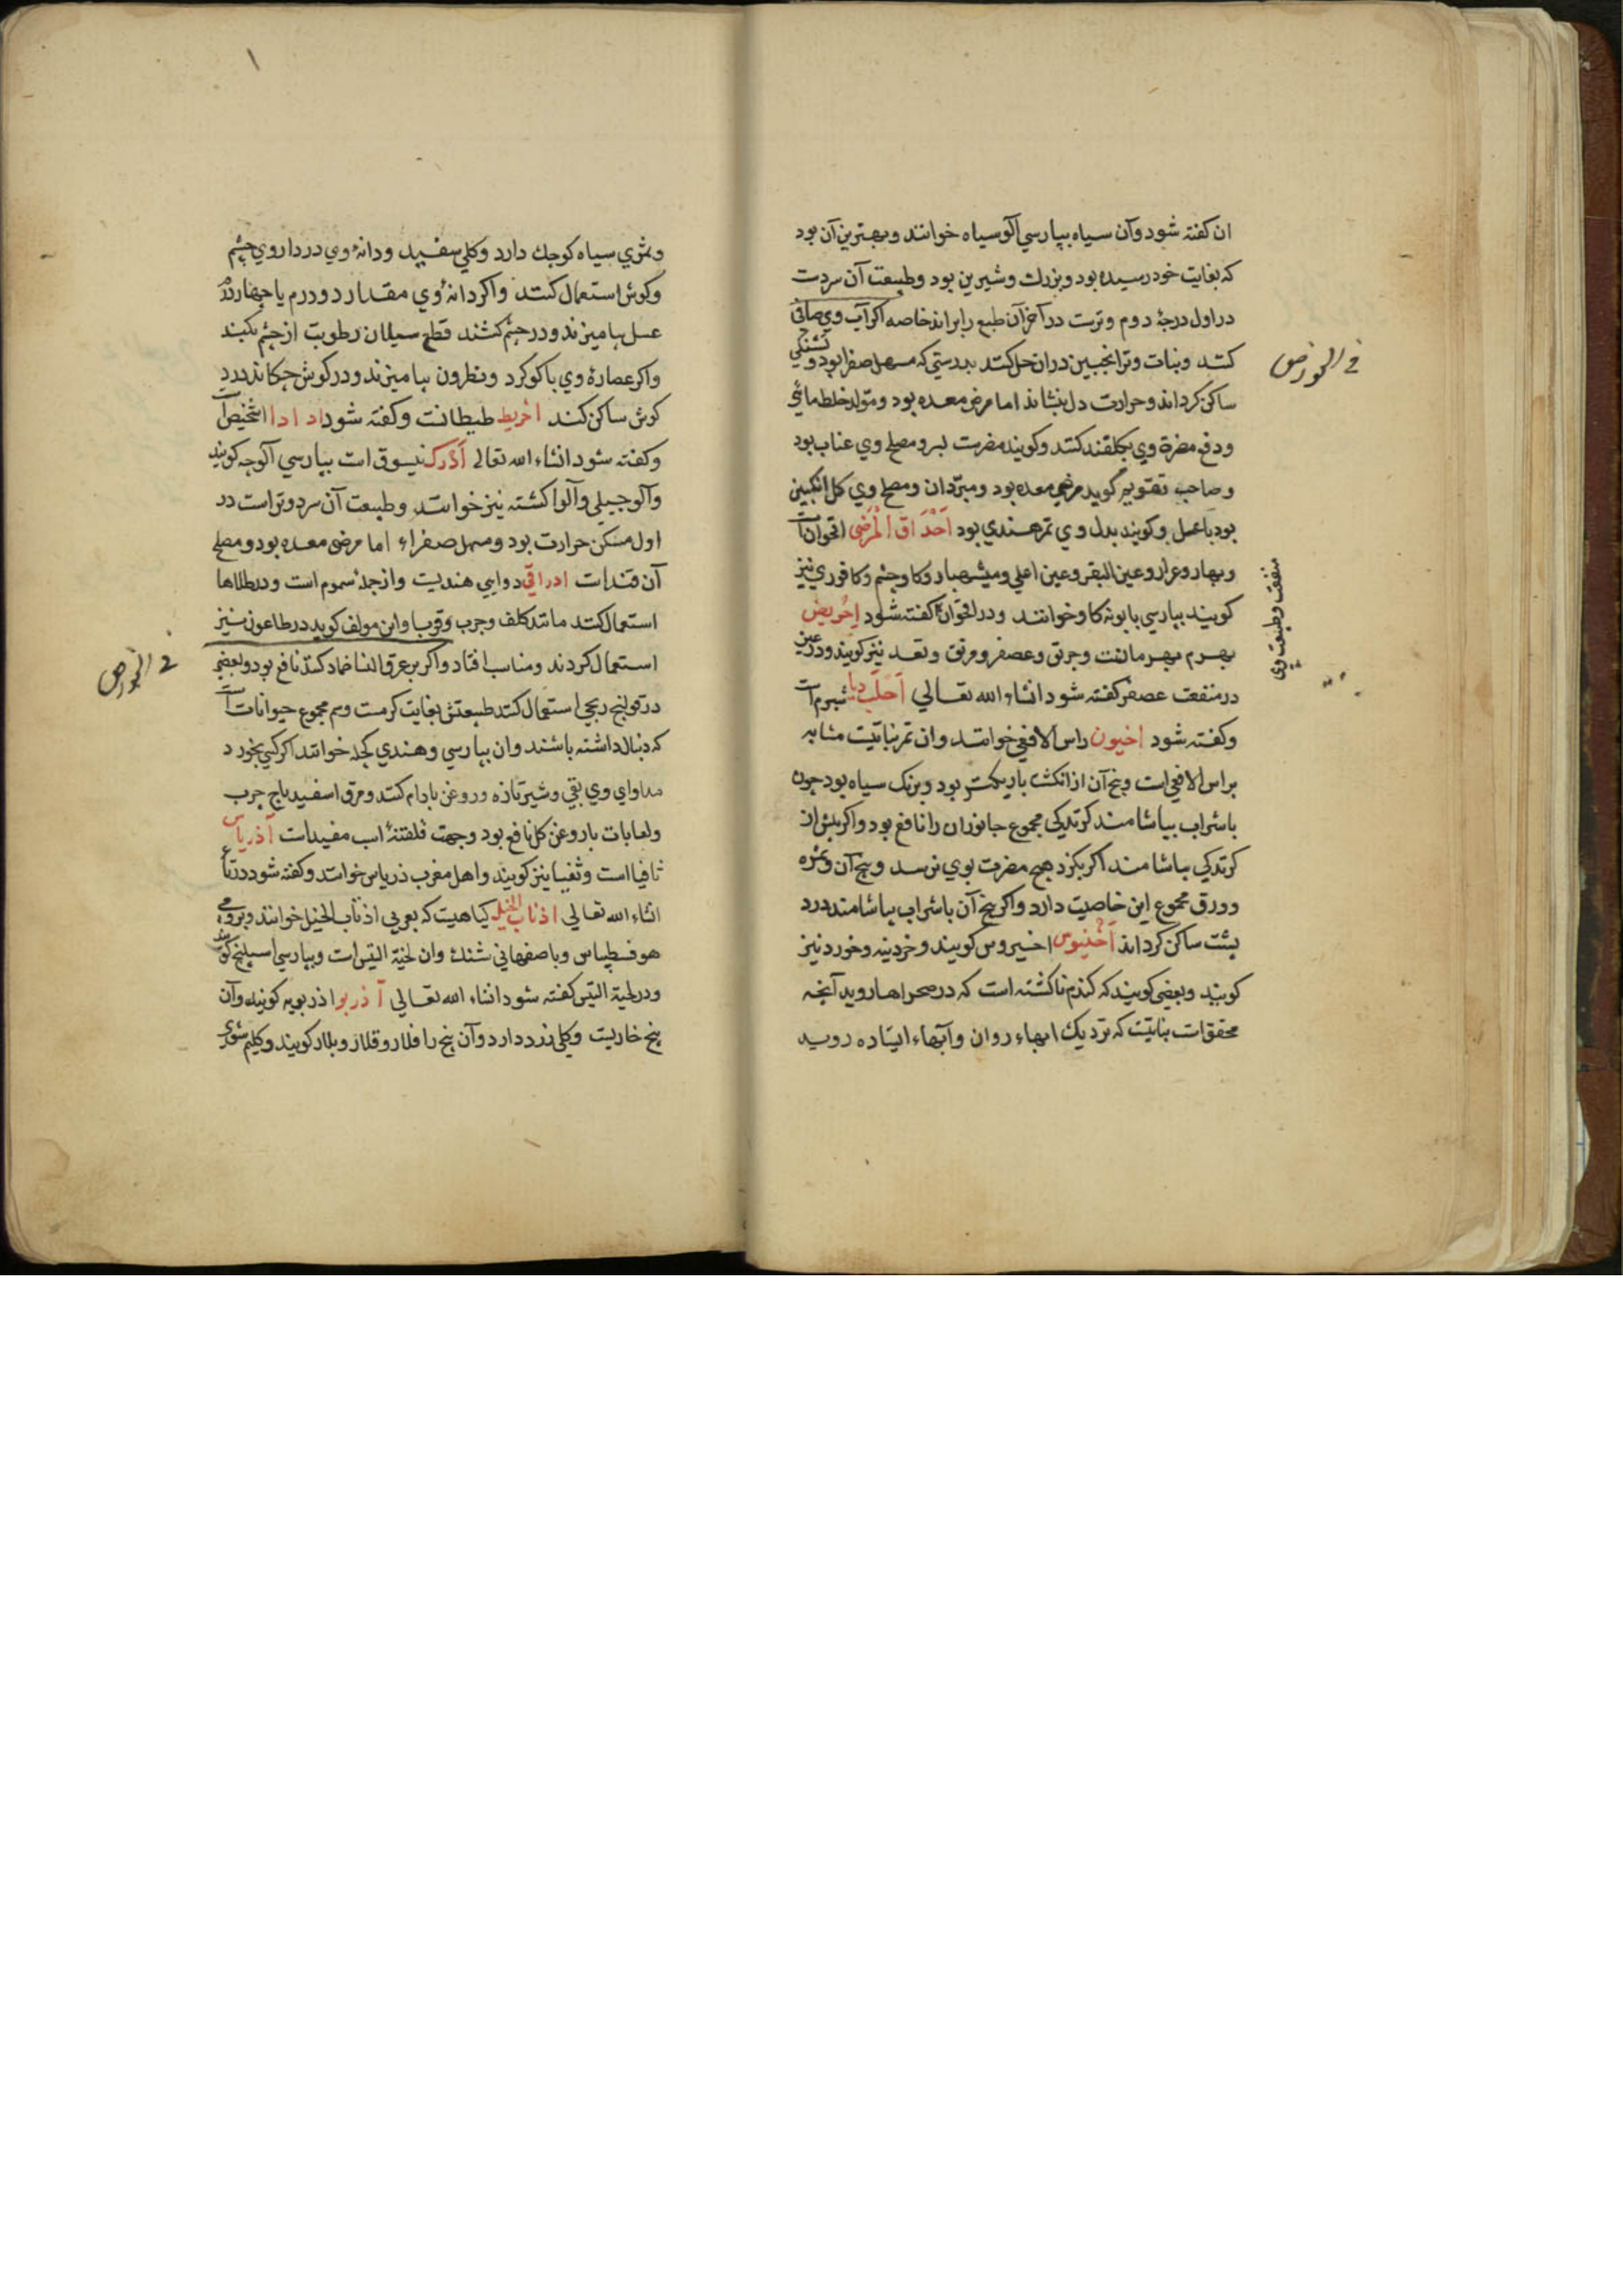 ان كفته شود وآن سياه بپارسي آلوسياه خوانند وبهترين آن بود
كه بغايت خود رسيده بود وبزرك وشيرين بود وطبيعت آن سردست
در اول درجهٔ دوم وترست در آخر آن طبع را براند خاصه اكر آب وي صافي
كنند ونبات وترانجبين دران حل كنند بدرستي كه مسهل صفرا بود و تشنكي
ساكن كرداند وحرارت دل بنشاند اما مرخي معده بود ومولد خلط مائي
ودفع مضرة وي بكلقند كنند وكويند مضرست بسر ومصلح وي عناب بود
وصاحب تقويم كويد مرخي معده بود ومبردان ومصلح وي كل انكبين
بود با عسل وكويند بدل وي تمرهندي بود احداق المرضى اقحوانست
وبهار وعرار وعين البقر وعين اعلي وكاوچشم وكافوري نيز
كويند بپارسي بابونه كاو خوانند ودر اقحوان كفته شود احريض
بهرم بهرمانست وعصفر ومريق نيز كويند ودر عين
در منفعت عصفر كفته شود انشاء الله تعالي احلب دبا شبرم است
وكفته شود اخيون راس الافعي خوانند وان ثمر نباتيست مشابه
براس الافعي است وبيخ آن از انكشت باريكتر بود وبرنك سياه بود چون
باشراب بياشامند كزندكي مجموع جانوران را نافع بود واكر پيش از
كزندكي بياشامند اكر بكزد هيچ مضرت بوي نرسد وبيخ آن وثمره
وورق مجموع اين خاصيت دارد واكر بيخ آن باشراب بياشامند درد
پشت ساكن كرداند اخينوس اخسيروس كويند وخردينه وخورد نيز
كويند وبعضي كويند كه كندم ناكشته است كه در صحراها رويد آنچه
محققات نباتيست كه نزديك ابهاء روان وآبهاء ايستاده رويد
في الخورص
منفعت وطبيعت وي
وثمري سياه كوچك دارد وكلي سفيد ودانهٔ وي در داروي چشم
وكوش استعمال كنند واكر دانهٔ وي مقدار دو درم يا چهار درم
عسل بياميزند ودر چشم كشند قطع سيلان رطوبت از چشم بكند
واكر عصارهٔ وي با كوكرد ونطرون بياميزند ودر كوش چكانند درد
كوش ساكن كند اخريط طيطانست وكفته شود اد ادا اشخيص است
وكفته شود انشاء الله تعالي ادرك نيسوق است بپارسي آلوچه كويند
وآلو جبلي وآلو كشته نيز خوانند وطبيعت آن سرد وتر است در
اول مسكن حرارت بود ومسهل صفراء اما مرخي معده بود ومصلح
آن قندات ادراقي دوايي هنديست واز جملهٔ سموم است ودر طلاها
استعمال كنند مانند كلف وجرب وقوبا واين مولف كويد در طاعون نيز
استعمال كردند ومناسب افتاد واكر بر عرق النسا ضماد كنند نافع بود وبعضي
در قولنج ريحي استعمال كنند طبيعتش بغايت كرمست وسم مجموع حيوانات است
كه دنبال داشته باشند وان بپارسي وهندي كجله خوانند اكر كسي بخورد
مداواي وي بقي وشير تازه وروغن بادام كنند ومرق اسفيدباج چرب
ولعابات با روغن كل نافع بود وجهت اسب مفيداست آذرياس
ثافيا است وثفسيا نيز كويند واهل مغرب ذرياس خوانند وكفته شود در ثا
انشاء الله تعالي اذناب الخيل كياهيست كه بعربي اذناب الخيل خوانند وبرومي
هوفسطيداس وباصفهاني شنك وان لحية التيس است وبپارسي كويند
ودر لحية التيس كفته شود انشاء الله تعالي آذربو اذربويه كويند وآن
بيخ خاريست وكلي زرد دارد وآن بيخ را فلار وقلار وبلار كويند وكليم شوي
في الخورص